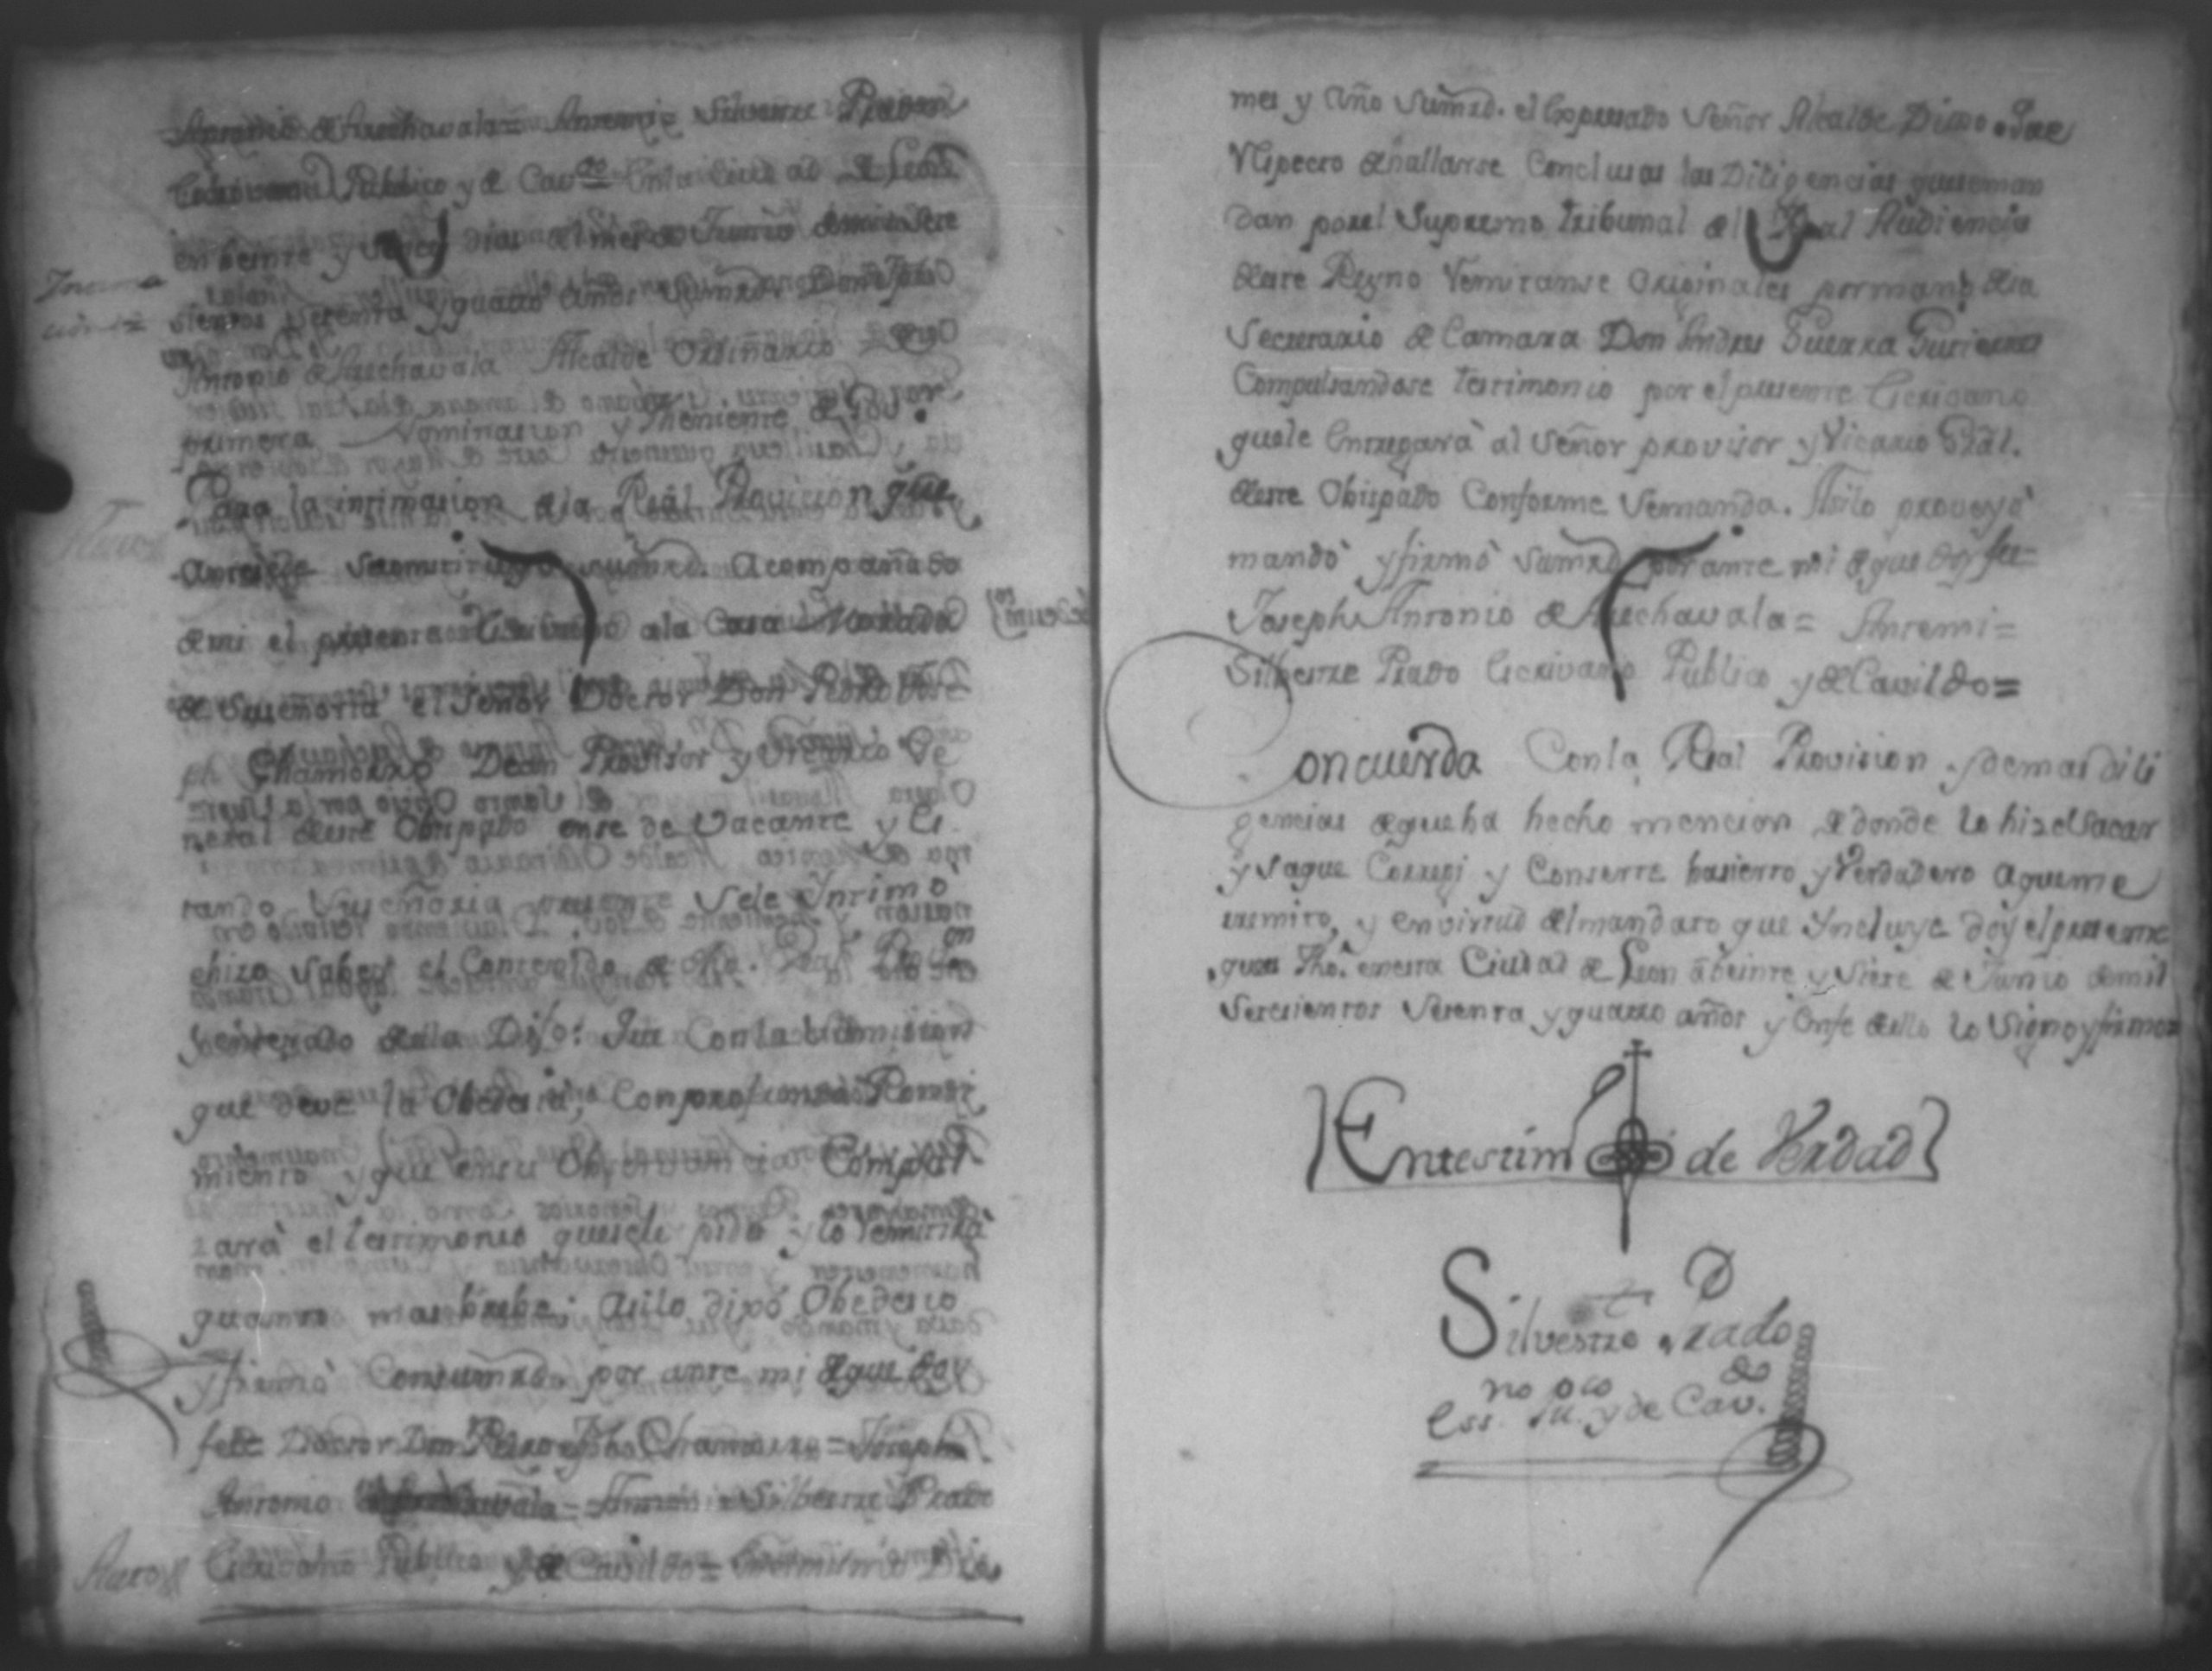 Antonio de Arechavala = Antemi = Silvestre Prado
Escrivano Publico y de Cav.do En la Ciudad de Leon
en beinte y dias del mes de Junio de mil sete
Intima
cion =
sientos setenta y quatro años su mrd. Don Jph
Antonio de Arechavala Alcalde Ordinario de
primera Nominasion y Theniente de Gov.or
Para la intimasion de la Real Provicion que
antesede su mrd. acompañado
de mi el presente Escrivano a la Casa Morada
de Su señoria el Señor Doctor Don Pedro Jose
ph Chamorro Dean Provisor y Vicario Ge
neral de este Obispado en se de Vacante y Es
tando Su señoria presente se le Yntimó
e hizo saber el Contenido de dha. Real Provi.on
y enterado de ella Dijo: Que Con la sumision
que deve la Obedecia, Con profundo Rendi
miento y que en su Obserbancia Compul
zará el testimonio que se le pide y lo remitirá
quanto mas brebe: asilo dixó Obedecio
y firmó Con su mrd. por ante mi de que doy
fee = Doctor Don Pedro Jph Chamorro = Joseph
Antonio de Arechavala = Antemi = Silbestre Prado
Auto Escrivano Publico y de Cavildo = En el mismo Dia
mes y año su mrd. el Expresado Señor Alcalde Dixo. Que
respecto de hallarse Conclusas las Diligencias que se man
dan por el Supremo tribunal de la Real Audiencia
de este Reyno remitanse Originales por mano de la
Secretario de Camara Don Andres Guerra Gutierres
Compulsandose testimonio por el presente Escrivano
que le Entregará al Señor provisor y Vicario Gral.
de este Obispado Conforme se manda. Asilo proveyó
mandó y firmó su mrd por ante mi de que doy fee=
Joseph Antonio de Arechavala = Antemi =
Silbestre Prado Escrivano Publico y de Cavildo =
Concuerda Con la Real Provision y demas dili
gencias de que ha hecho mencion de donde lo hize sacar
y saque Corregi y Conserte ba sierto y Verdadero a que me
remito, y en virtud del mandato que Yncluye doy el presente
que es fho. en esta Ciudad de Leon a beinte y siete de Junio de mil
setesientos setenta y quatro años y En fe de ello lo Signo y firmo =
En testim.o de Verdad
Silvestre Prado
Ess.no Pu.co y de Cav.do